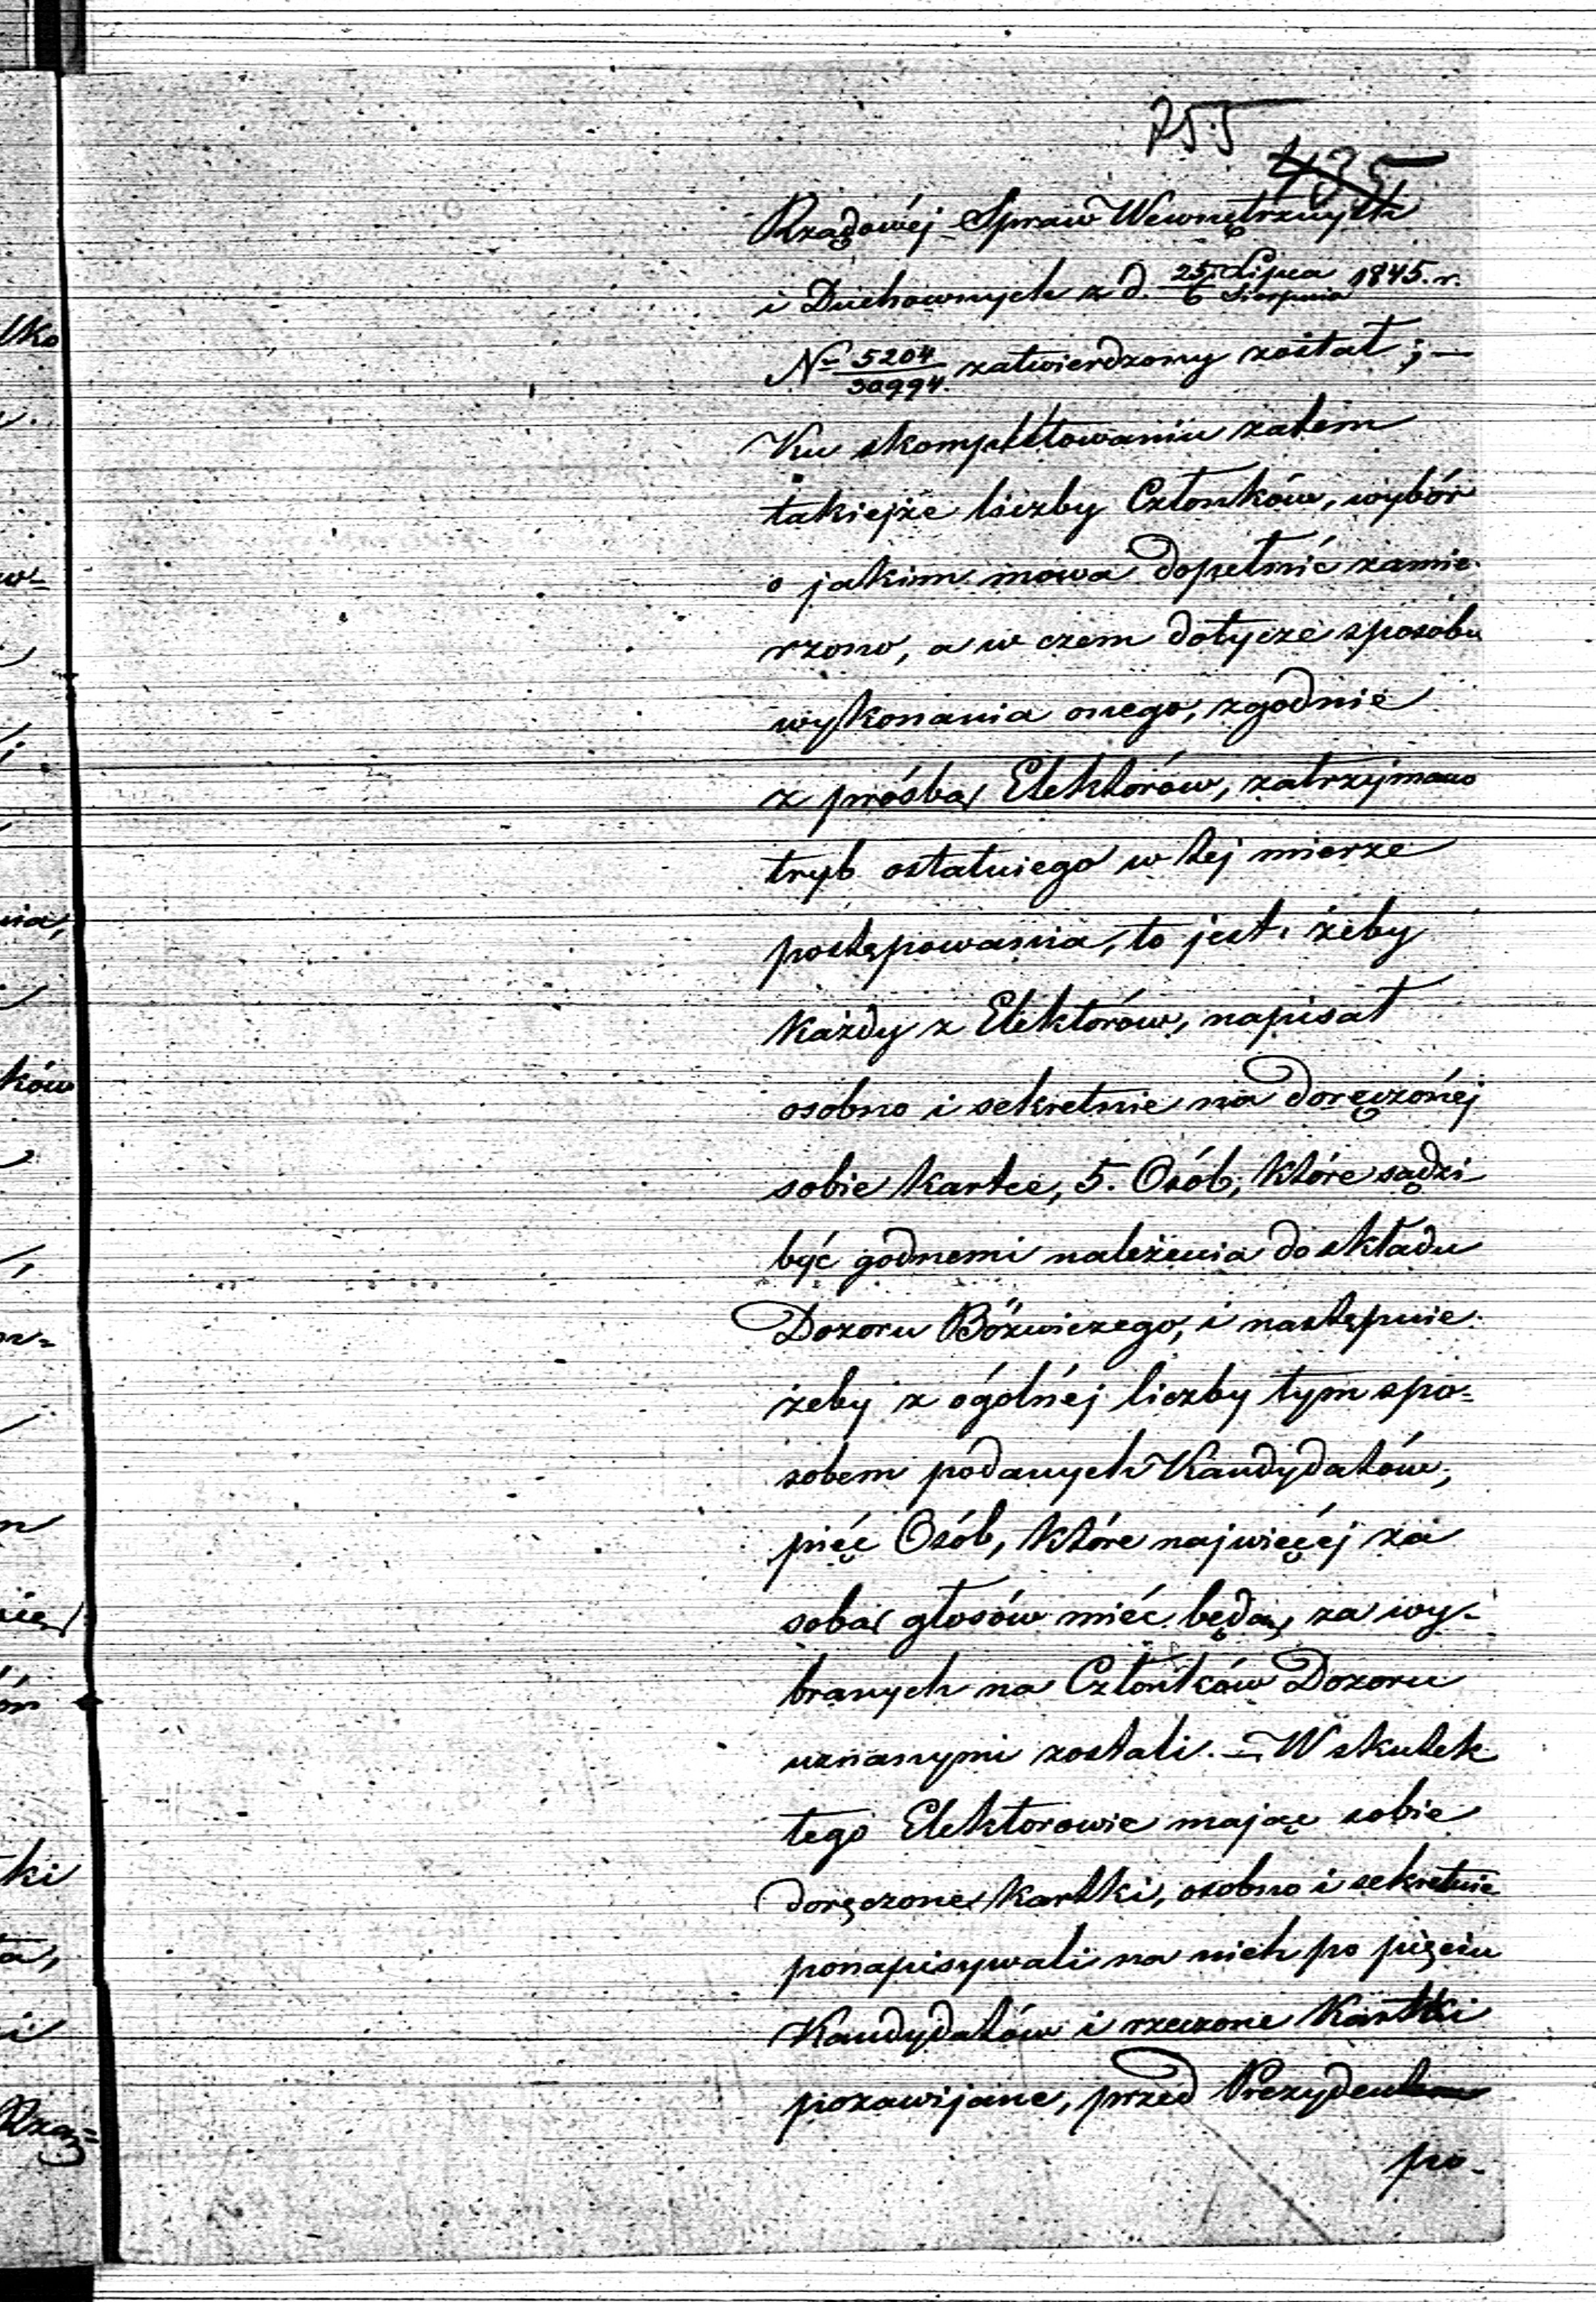 255
435
Rządowéj Spraw Wewnętrznych
i Duchownych z d. 25 Lipca / 6 Sierpnia 1845. r.
No 5204/30994. zatwierdzony został; —
Ku skompletowaniu zatem
takiejże liczby Członków, wybór
o jakim mowa dopełnić zamie-
rzono, a w czem dotycze sposobu
wykonania onego, zgodnie
z prośbą Elektorów, zatrzymano
tryb ostatniego w tej mierze
postępowania, to jest, żeby
każdy z Elektorów, napisał
osobno i sekretnie na doręczonéj
sobie kartce, 5. Osób, które sądzi
być godnemi należenia do składu
Dozoru Bóżniczego, i następnie
żeby z ogólnéj liczby tym spo-
sobem podanych Kandydatów,
pięć Osób, które najwięcéj za
sobą głosów mieć będą, za wy-
branych na Członków Dozoru
uznanymi zostali. — W skutek
tego Elektorowie mając sobie
doręczone kartki, osobno i sekretnie
ponapisywali na nich po pięciu
Kandydatów i rzeczone Kartki
pozawijane, przed Prezydentem
po-